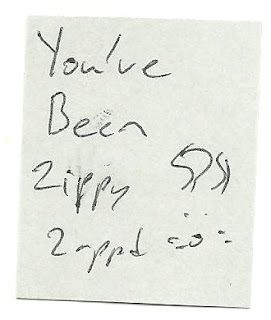 You've
Been
Zippy
Zappd